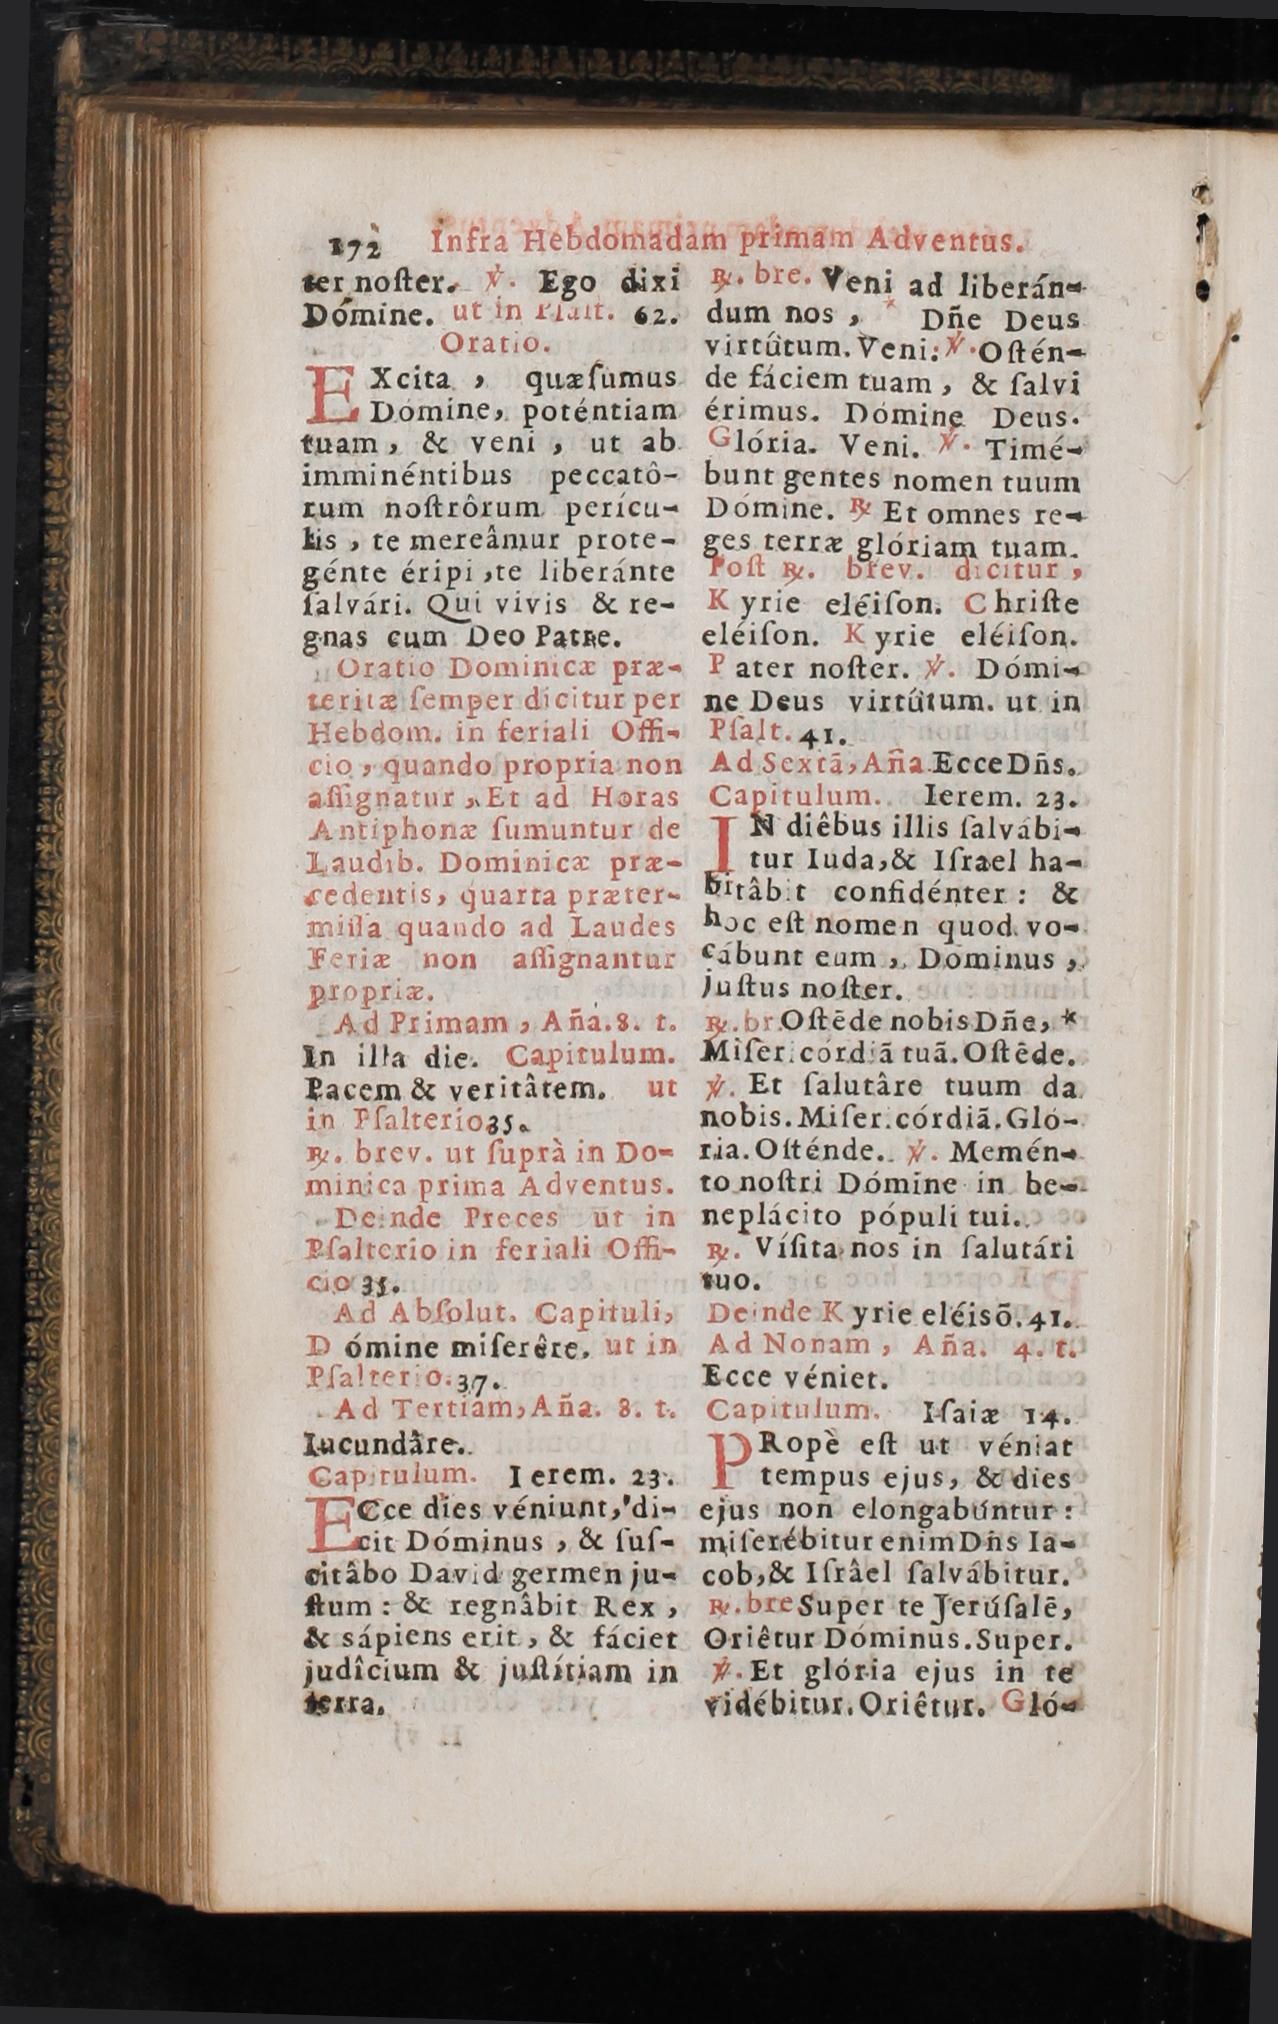 172 Infra Hebdomadam primam Adventus.
ter noſter. ℣. Ego dixi
Dómine. ut in Pſalt. 62.
Oratio.
EXcita, quæſumus
Dómine, poténtiam
tuam, & veni, ut ab
imminéntibus peccatô-
rum noſtrôrum perícu-
lis, te mereâmur prote-
génte éripi, te liberánte
ſalvári. Qui vivis & re-
gnas cum Deo Patre.
Oratio Dominicæ præ-
teritæ ſemper dicitur per
Hebdom. in feriali Offi-
cio, quando propria non
aſſignatur, Et ad Horas
Antiphonæ ſumuntur de
Laudib. Dominicæ præ-
cedentis, quarta præter-
miſſa quando ad Laudes
Feriæ non aſſignantur
propriæ.
Ad Primam, Aña. 8. t.
In illa die. Capitulum.
Pacem & veritâtem. ut
in Pſalterio 35.
℟. brev. ut ſuprà in Do-
minica prima Adventus.
Deinde Preces ut in
Pſalterio in feriali Offi-
cio 35.
Ad Abſolut. Capituli,
Dómine miſerêre. ut in
Pſalterio. 37.
Ad Tertiam, Aña. 8. t.
Iucundâre.
Capitulum. Ierem. 23.
ECce dies véniunt, di-
cit Dóminus, & ſuſ-
citâbo David germen ju-
ſtum: & regnâbit Rex,
& sápiens erit, & fáciet
judîcium & juſtítiam in
terra.
℟. bre. Veni ad liberán-
dum nos, * Dñe Deus
virtûtum. Veni. ℣. Oſtén-
de fáciem tuam, & ſalvi
érimus. Dómine Deus.
Glória. Veni. ℣. Timé-
bunt gentes nomen tuum
Dómine. ℟ Et omnes re-
ges terræ glóriam tuam.
Poſt ℟. brev. dicitur,
Kyrie eléiſon. Chriſte
eléiſon. Kyrie eléiſon.
Pater noſter. ℣. Dómi-
ne Deus virtûtum. ut in
Pſalt. 41.
Ad Sextã, Aña. Ecce Dñs.
Capitulum. Ierem. 23.
IN diêbus illis ſalvábi-
tur Iuda, & Iſrael ha-
bitâbit confidénter: &
hoc eſt nomen quod vo-
cábunt eum, Dominus,
juſtus noſter.
℟. br. Oſtēde nobis Dñe, *
Miſericórdiã tuã. Oſtēde.
℣. Et ſalutâre tuum da
nobis. Miſericórdiã. Gló-
ria. Oſténde. ℣. Memén-
to noſtri Dómine in be-
neplácito pópuli tui.
℟. Víſita nos in ſalutári
tuo.
Deinde Kyrie eléisõ. 41.
Ad Nonam, Aña. 4. t.
Ecce véniet.
Capitulum. Iſaiæ 14.
PRopè eſt ut véniat
tempus ejus, & dies
ejus non elongabúntur:
miſerébitur enim Dñs Ia-
cob, & Iſrâel ſalvábitur.
℟. bre Super te Jerúſalē,
Oriêtur Dóminus. Super.
℣. Et glória ejus in te
vidébitur. Oriêtur. Gló-